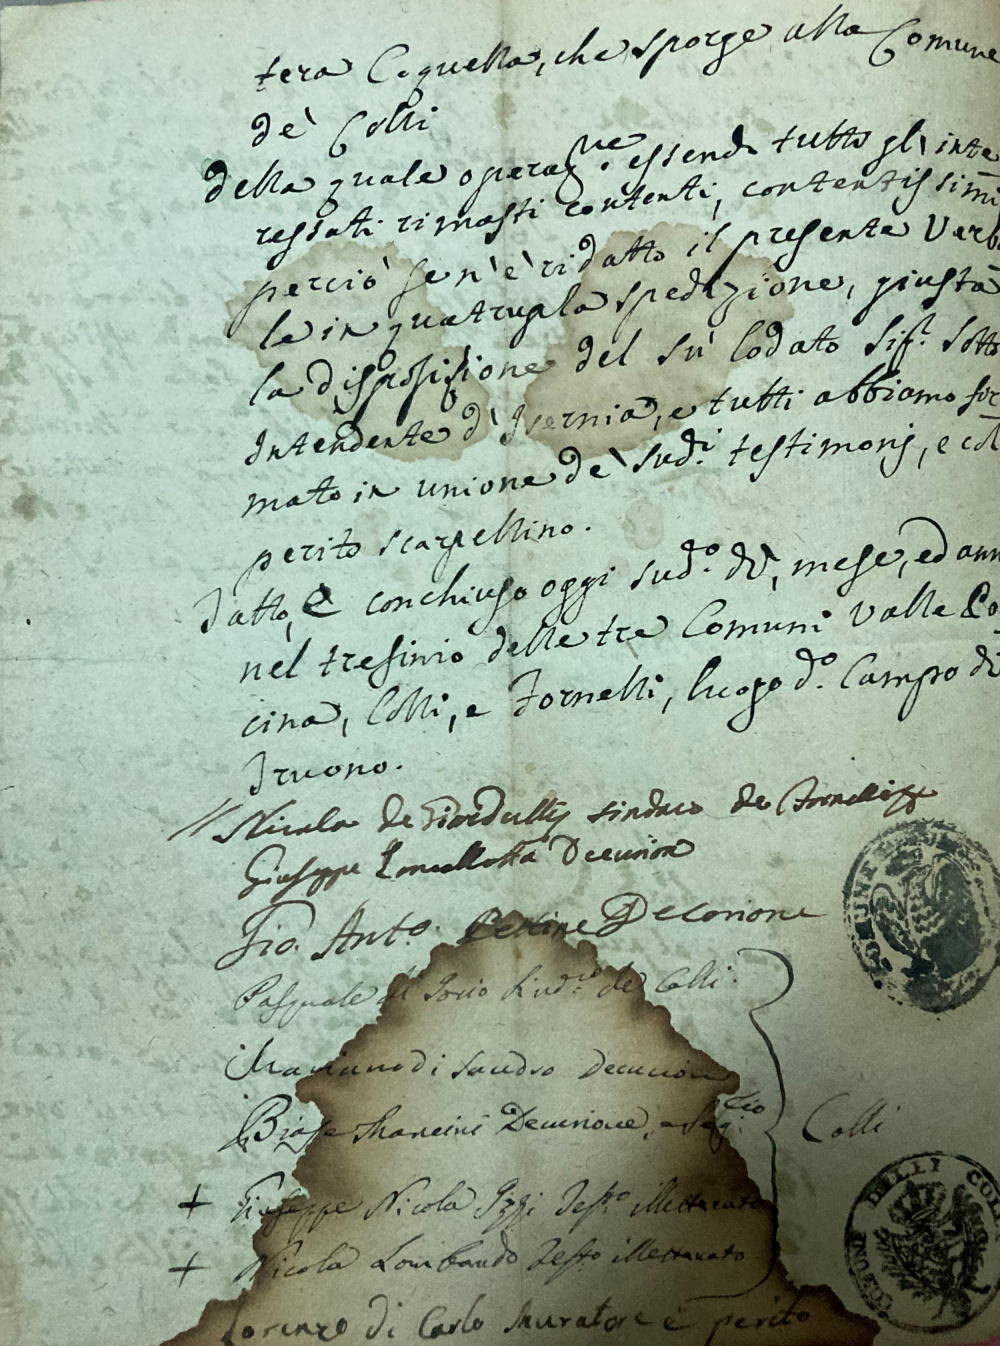 tera Coquella, che sporge alla Comune
de' Colli
della quale operaz.ne essendo tutto gl'inte
ressati rimasti contenti, contentissimi
perciò se n'è ridatto il presente Verba
le in quatrupla spedizione, giusta
la disposizione del su lodato Sig.r Sotto
Intendente d'Isernia, e tutti abbiamo fir
mato in unione de' sud.i testimonj, e col
perito scarpellino.
Fatto, e conchiuso oggi sud.o dì, mese, ed ann
nel trefinio delle tre Comuni Valle Po
cina, Colli, e Fornelli, luogo d.o Campo di
Truono.
Nicola de sindaco de Fornelli
Giuseppe Lancellotta Decurione
Gio. Ant.o Pettine Decorione
Pasquale di Iorio Sind.co de Colli.
Mariano di Sandro Decurion
Biase Mancini Decurione, e Seg.rio
Colli
+ Giuseppe Nicola Izzi Test.o illetterato
+ Nicola Lombardo Testo illetterato
Lorenzo di Carlo Muratore e perito
COMUNE
COMUNE DELLI COLLI